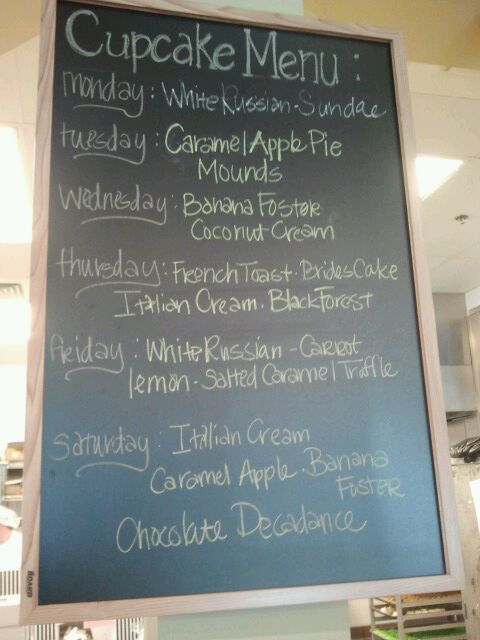 Cupcake Menu:
monday: White Russian - Sundae
tuesday: Caramel Apple Pie
Mounds
Wednesday: Banana Foster
Coconut Cream
thursday: French Toast. Brides Cake
Italian Cream. Black Forest
friday: White Russian - Carrot
lemon - Salted Caramel Truffle
Saturday: Italian Cream
Caramel Apple. Banana
Foster
Chocolate Decadance